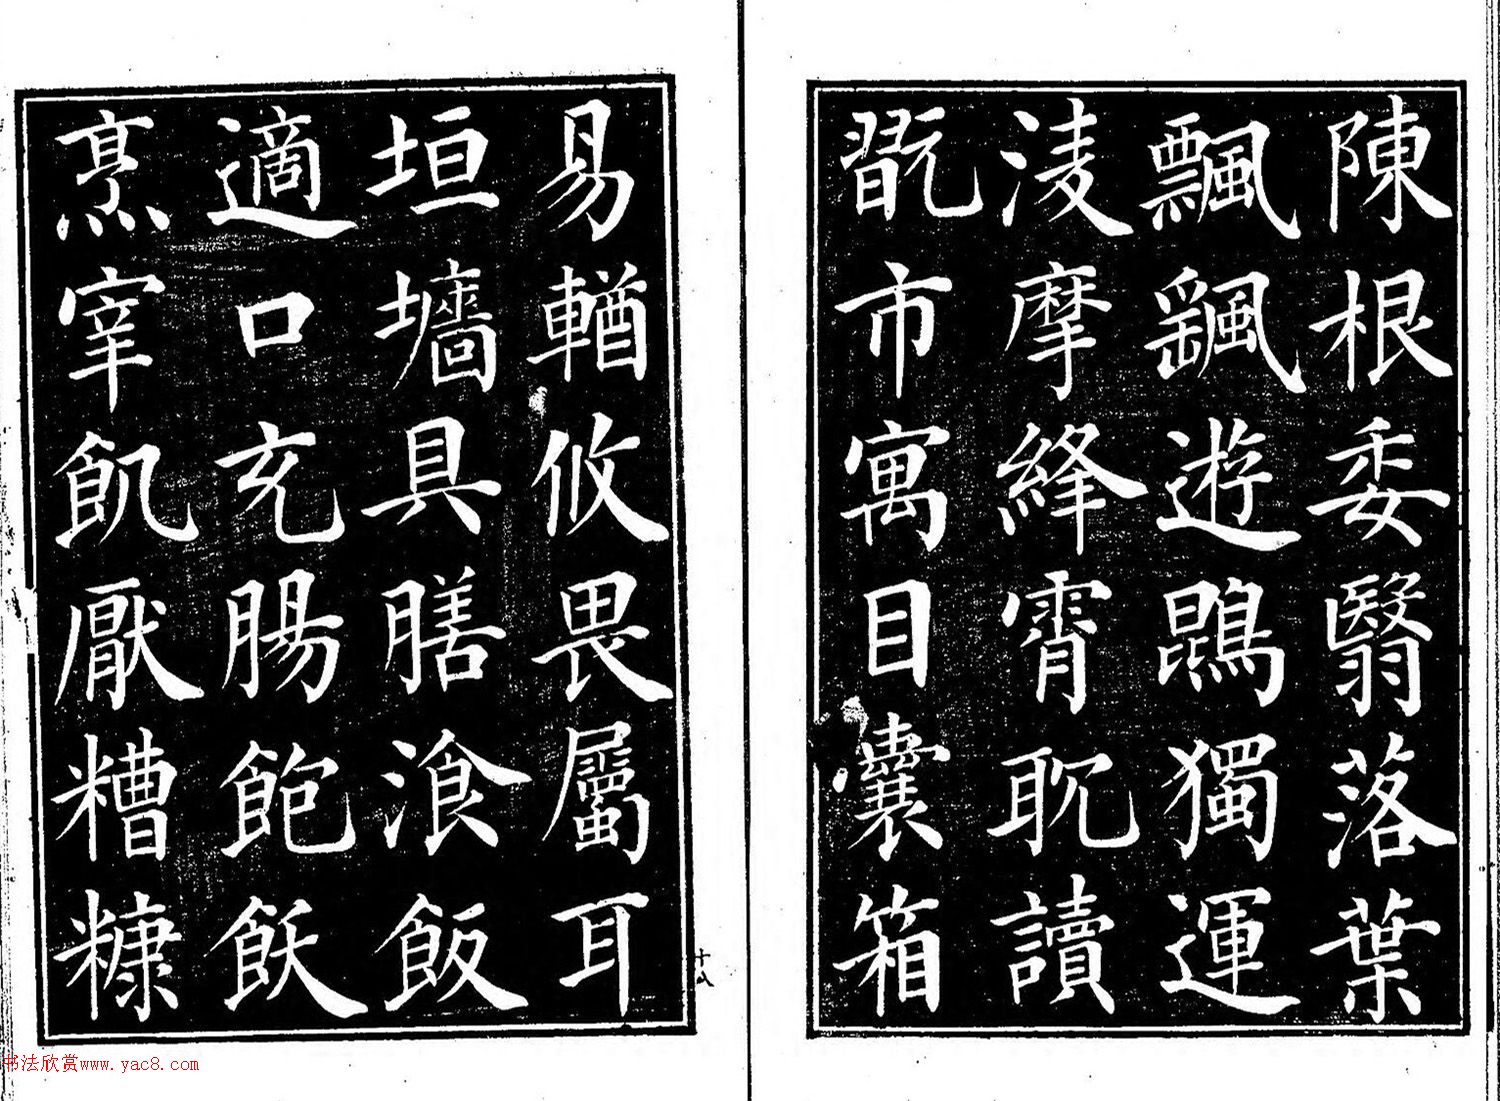 陳根委翳落葉
飄颻遊鵾獨運
淩摩絳霄耽讀
翫市寓目囊箱
易輶攸畏屬耳
垣墻具膳飡飯
適口充腸飽飫
烹宰飢厭糟糠
十八
书法欣赏www.yac8.com